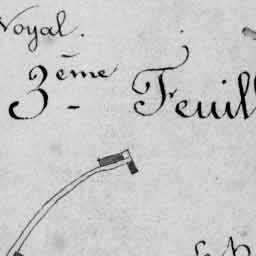 Noyal.
3ème Feuil